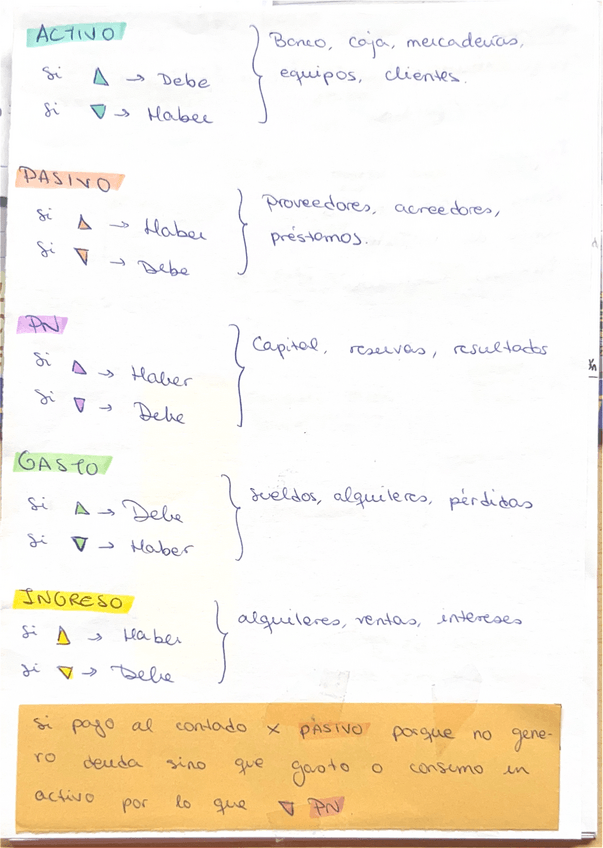 ACTIVO
Si △ → Debe
Si ▽ → Haber
Banco, caja, mercaderías,
equipos, clientes.
PASIVO
Si △ → Haber
Si ▽ → Debe
Proveedores, acreedores,
préstamos.
PN
Si △ → Haber
Si ▽ → Debe
Capital, reservas, resultados
GASTO
Si △ → Debe
Si ▽ → Haber
Sueldos, alquileres, pérdidas
INGRESO
Si △ → Haber
Si ▽ → Debe
alquileres, ventas, intereses
Si pago al contado x PASIVO porque no gene-
ro deuda sino que gasto o consumo un
activo por lo que ▽ PN